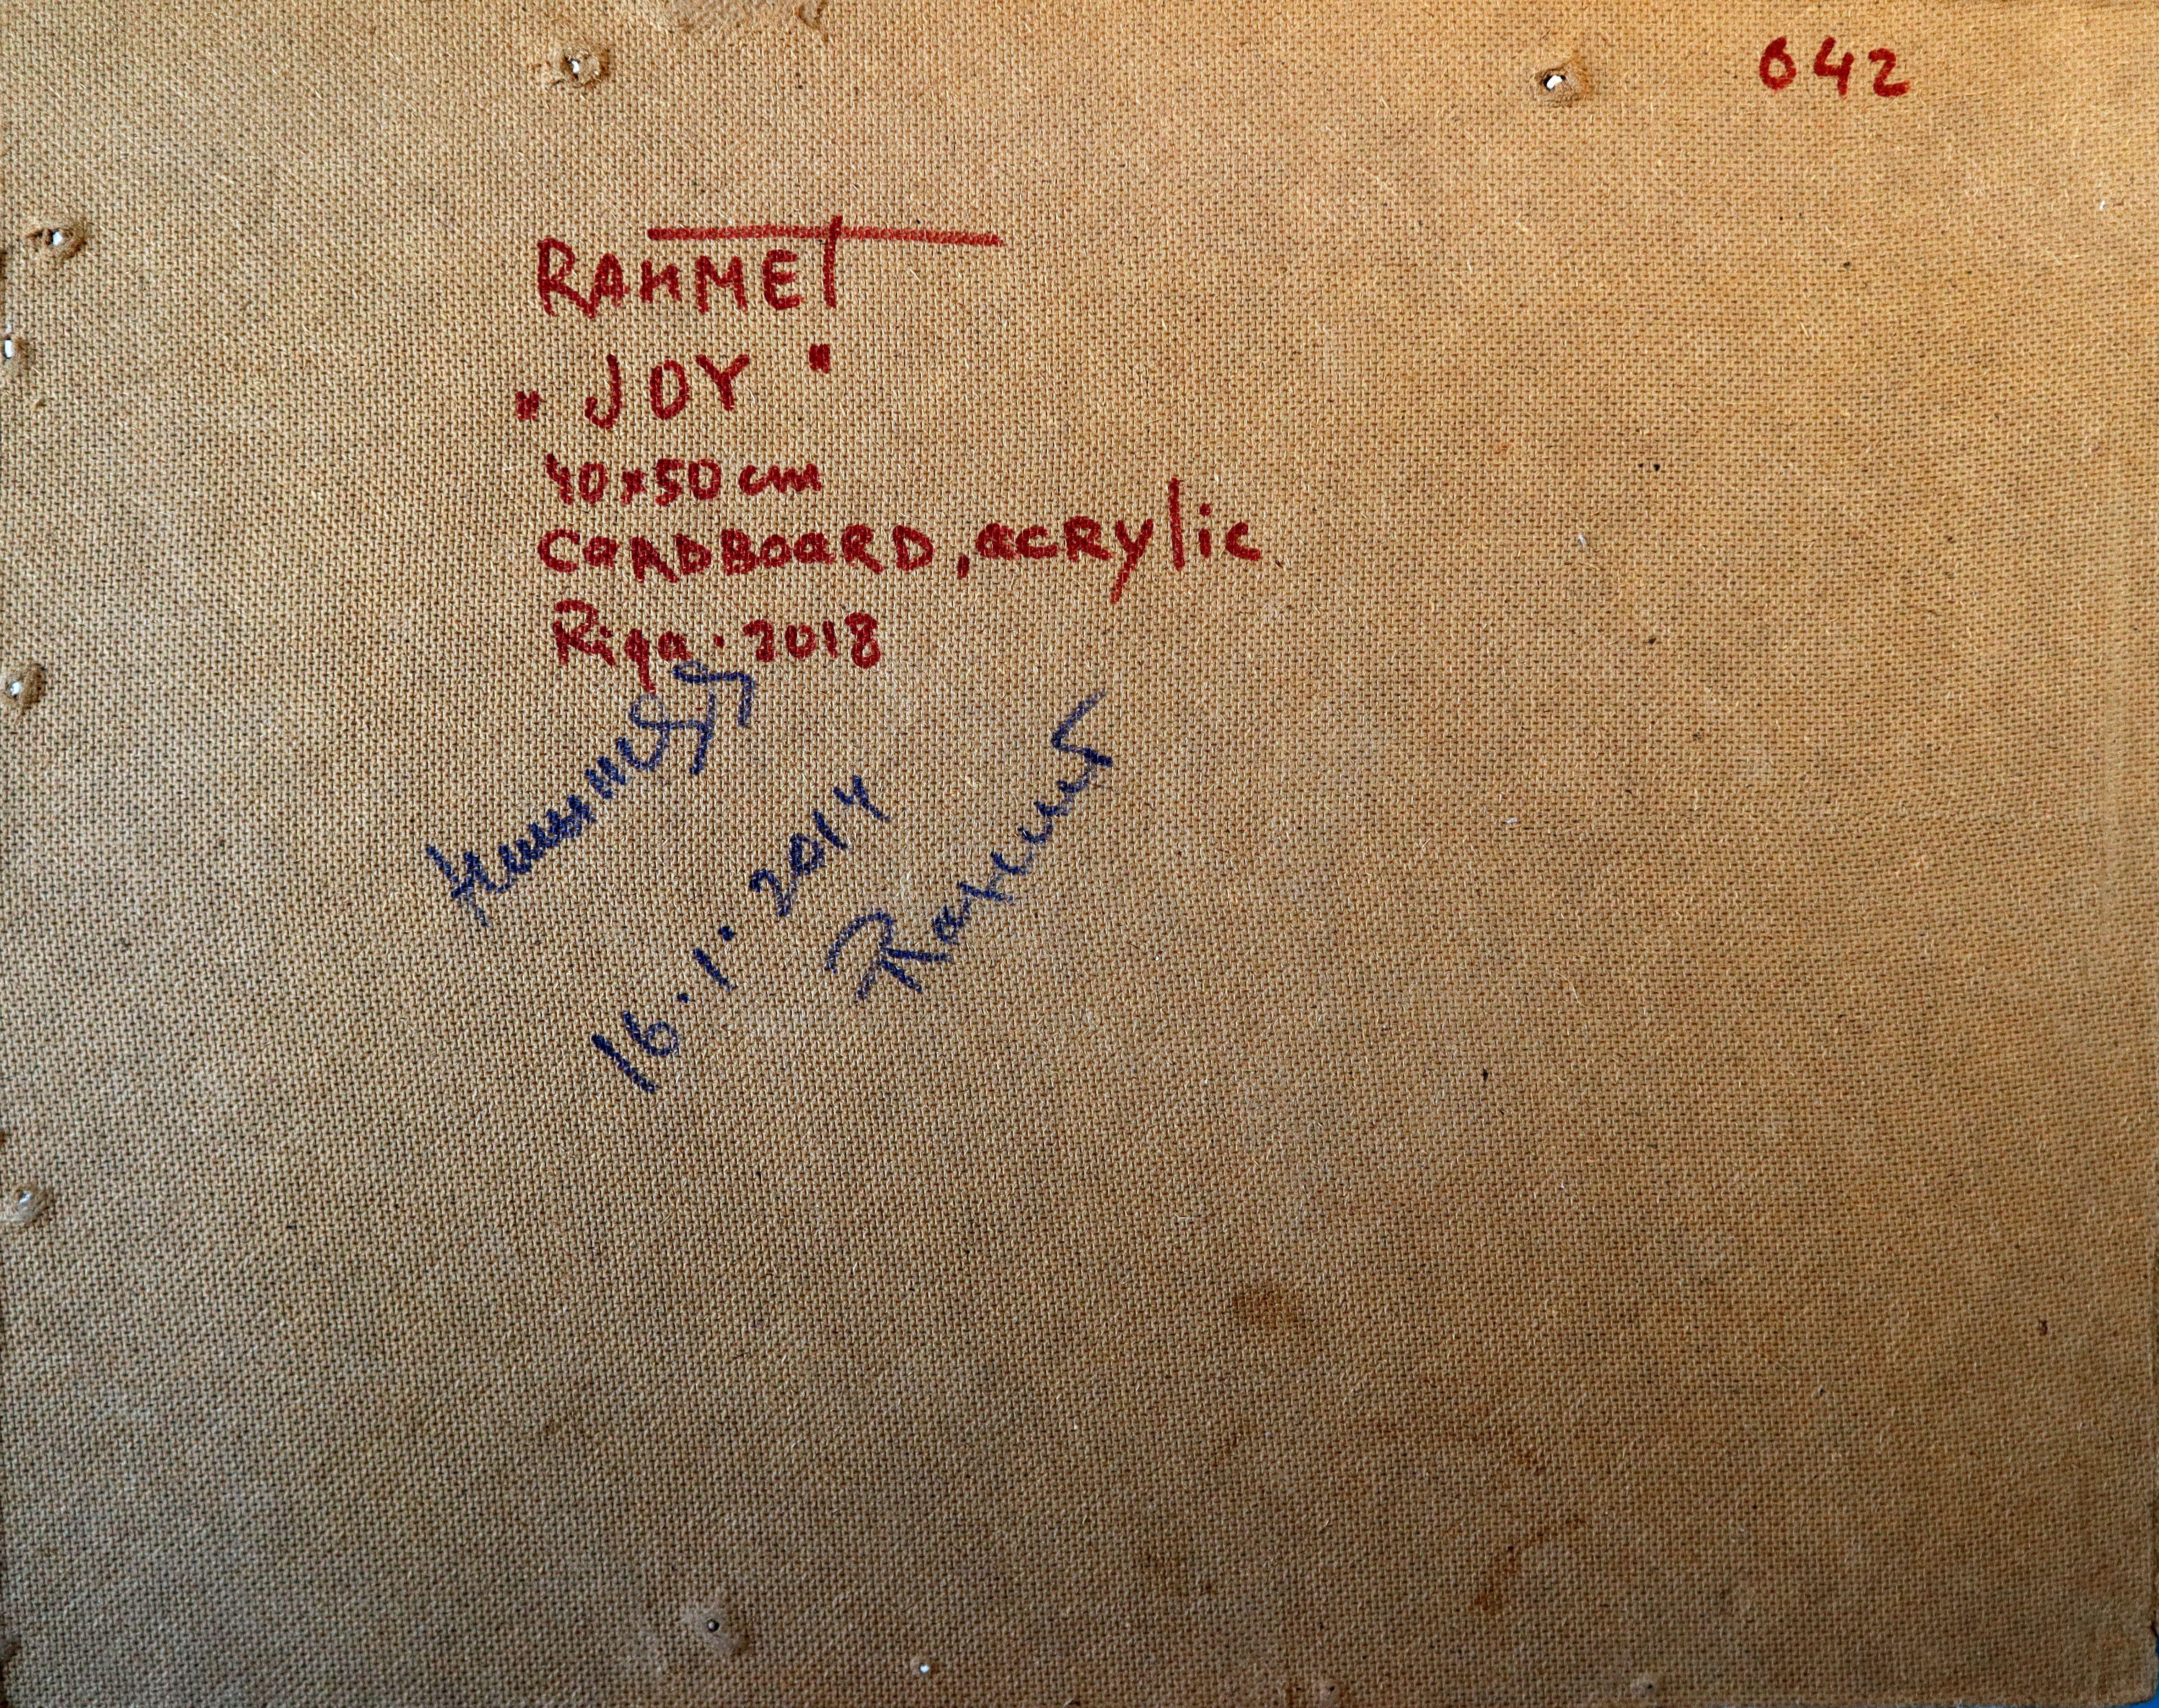 642
RAHMET
„JOY"
40x50 cm
CARDBOARD, acRylic
Riga. 2018
16.1.2014